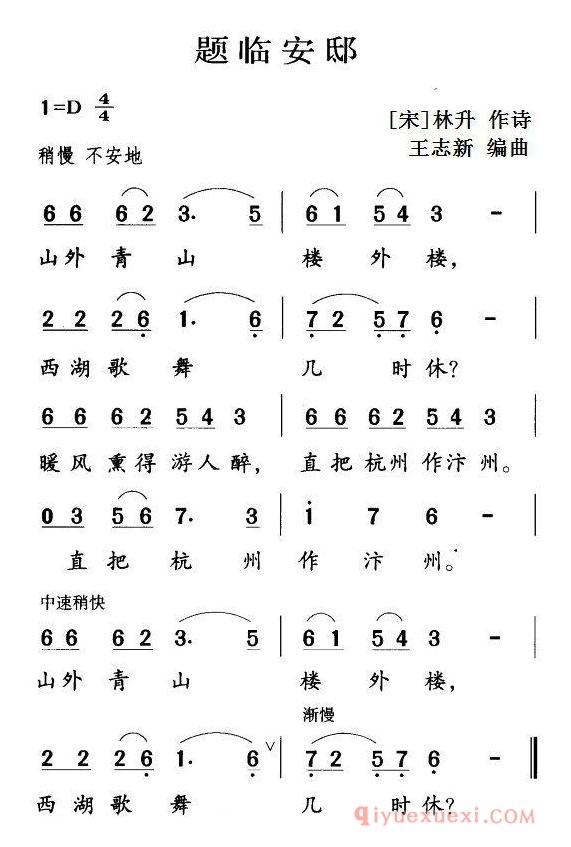 题临安邸
1=D 4/4
[宋]林升 作诗
稍慢 不安地
王志新 编曲
6 6 6 2 3. 5 | 6 1 5 4 3 - |
山外青山 楼外楼,
2 2 2 6 1. 6 | 7 2 5 7 6 - |
西湖歌舞 几时休?
6 6 6 2 5 4 3 | 6 6 6 2 5 4 3 |
暖风熏得游人醉, 直把杭州作汴州。
0 3 5 6 7. 3 | i 7 6 - |
直把杭州 作汴州。
中速稍快
6 6 6 2 3. 5 | 6 1 5 4 3 - |
山外青山 楼外楼,
渐慢
2 2 2 6 1. 6 ∨ | 7 2 5 7 6 - ‖
西湖歌舞 几时休?
qiyuexuexi.com